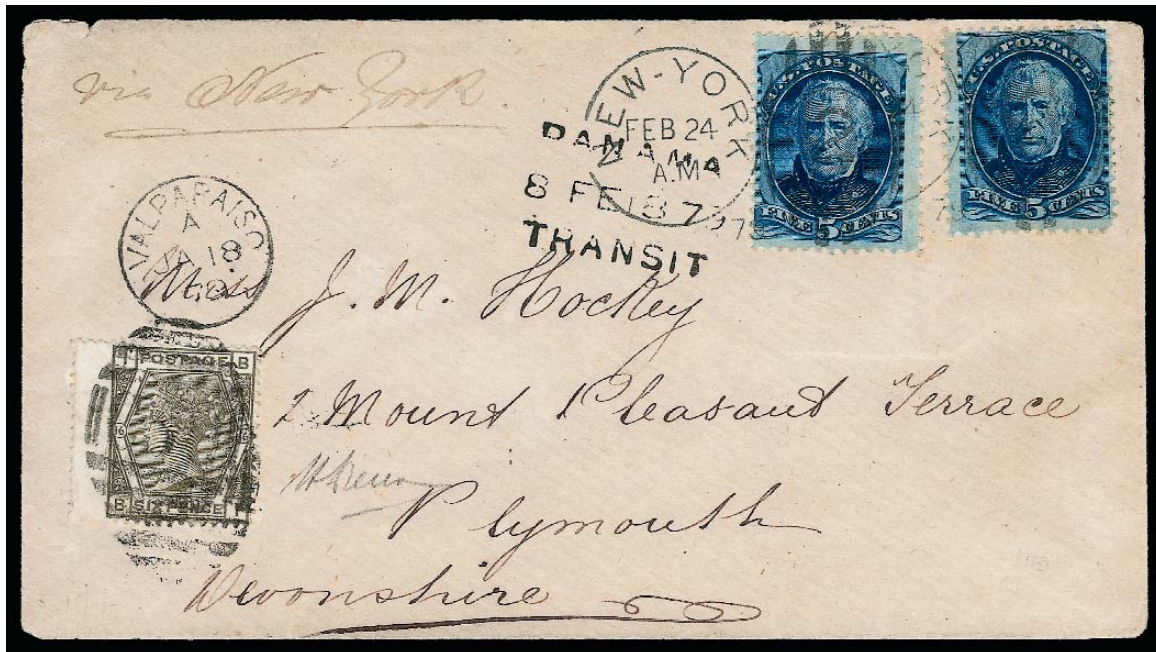 via New York
NEW-YORK
FEB 24
A.M
PANAMA
8 FE 187
TRANSIT
U.S. POSTAGE
FIVE 5 CENTS
U.S. POSTAGE
FIVE 5 CENTS
VALPARAISO
A
JA 18
Miss J. M. Hockey
T POSTAGE B
16 16
B SIX PENCE T
2 Mount Pleasant Terrace
Plymouth
Devonshire